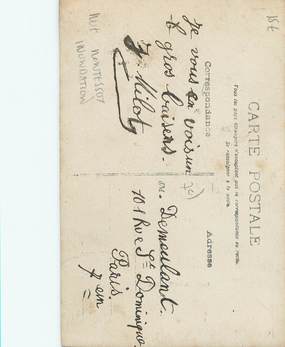 CARTE POSTALE
Tous les pays étrangers n'acceptent pas la correspondance au recto.
Se renseigner à la poste.
Correspondance
Adresse
Je vous en
6 gros baisers.
J. Milot
Demoulant.
101 Rue St Dominique
Paris
INONDATION